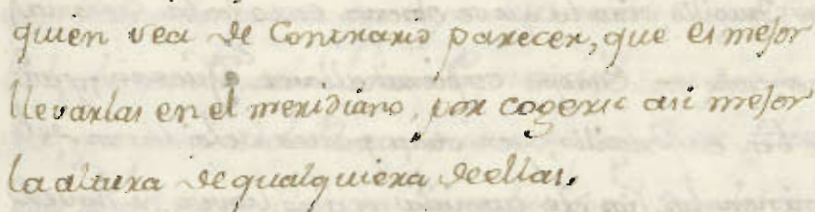 quien vea de Contrario parecer, que es mejor
llevarlas en el meridiano, por cogerse asi mejor
la altura de qualquiera de ellas.